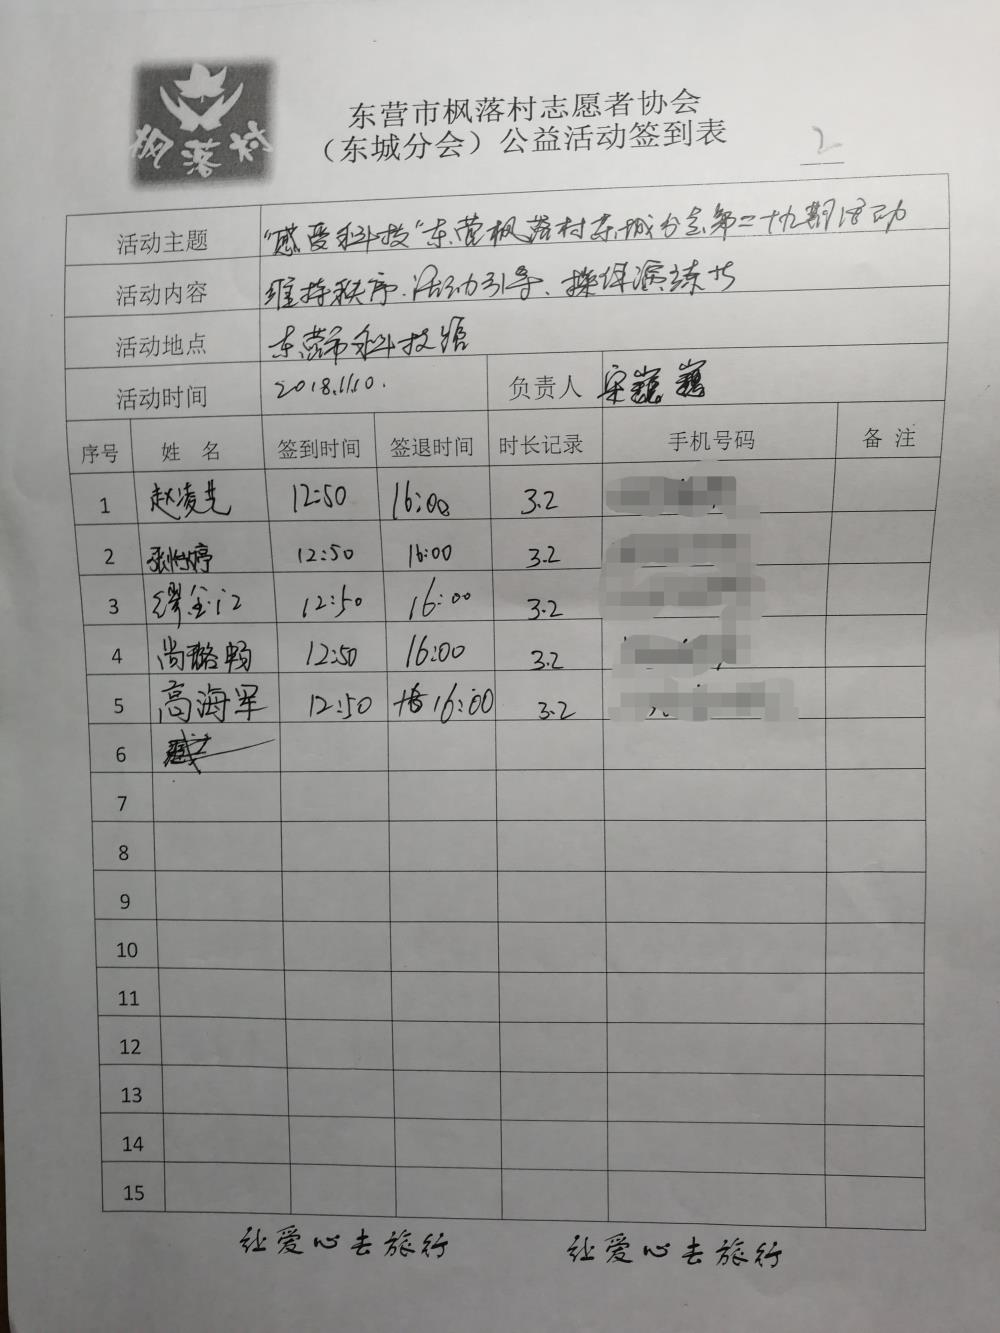 枫落村
东营市枫落村志愿者协会
（东城分会）公益活动签到表
2
活动主题 "感受科技"东营枫落村东城分会第二十九期活动
活动内容 维持秩序、活动引导、操作演练
活动地点 东营市科技馆
活动时间 2018.11.10. 负责人 宋巍巍
序号 姓 名 签到时间 签退时间 时长记录 手机号码 备 注
1 赵凌 12:50 16:00 3.2
2 张怡婷 12:50 16:00 3.2
3 缪金江 12:50 16:00 3.2
4 尚璐畅 12:50 16:00 3.2
5 高海军 12:50 16:00 3.2
6
7
8
9
10
11
12
13
14
15
让爱心去旅行 让爱心去旅行